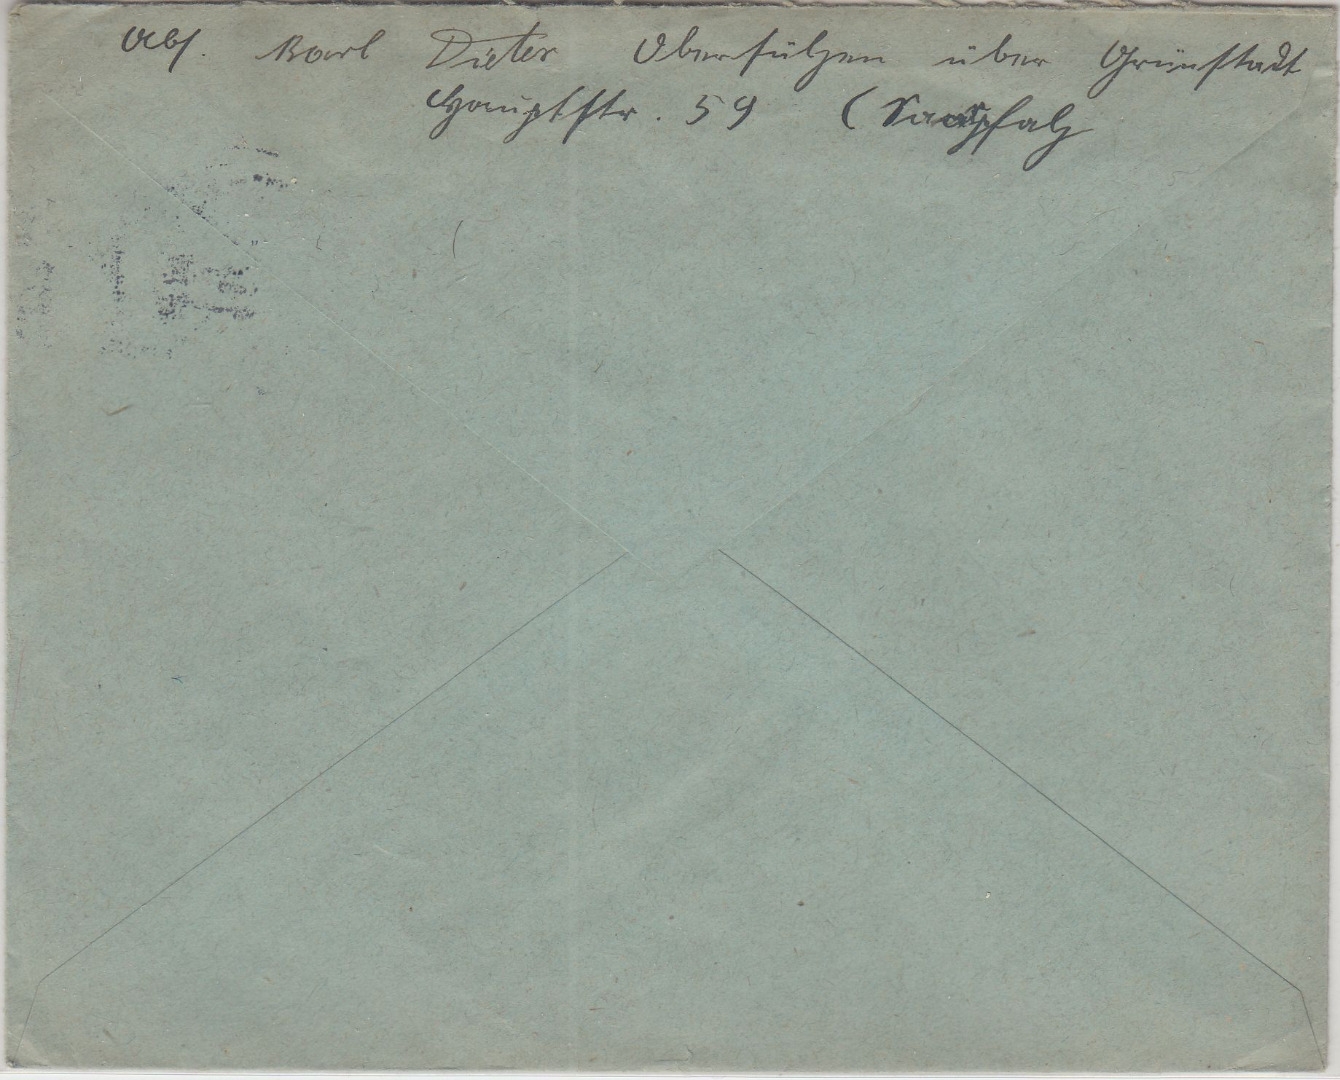 Abs. Karl Dieter Obersülzen über Grünstadt
Hauptstr. 59 (Saarpfalz